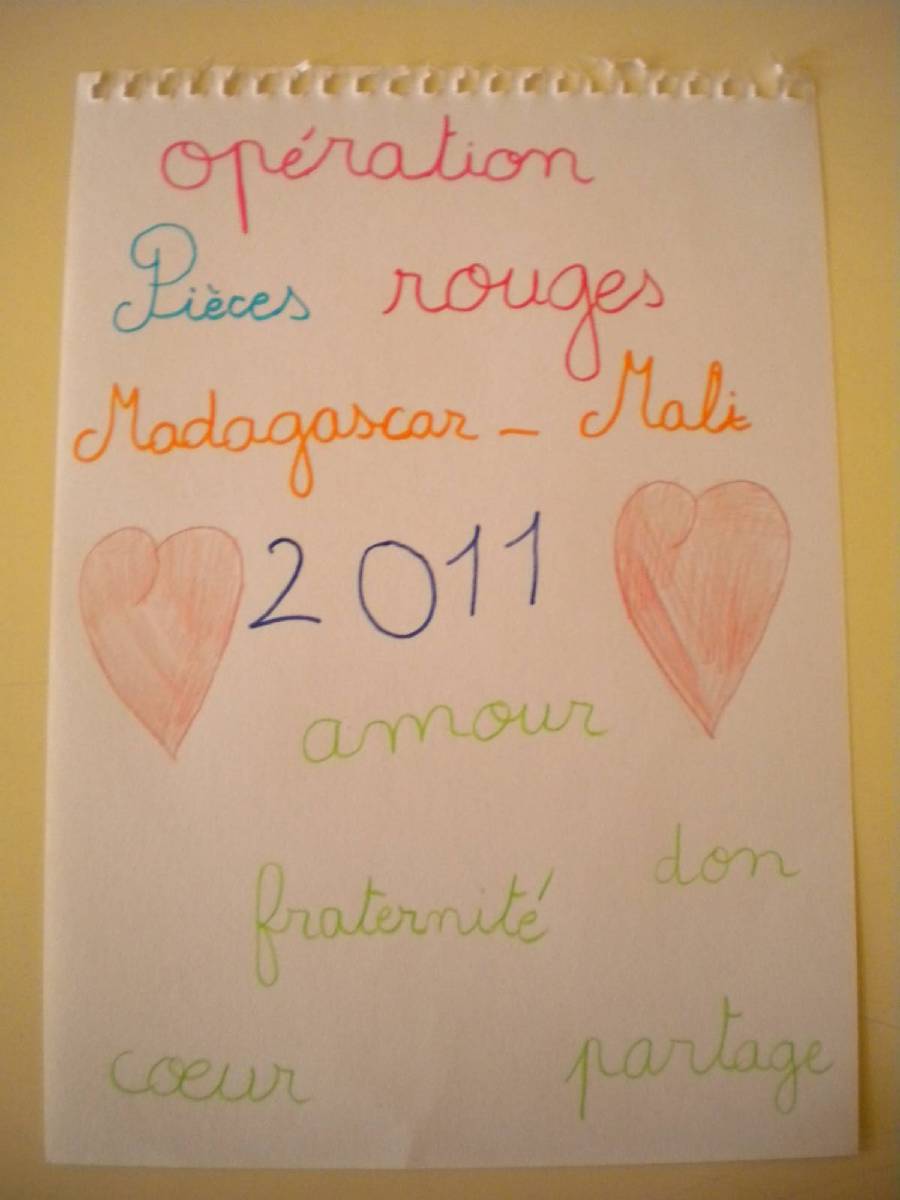 opération
Pièces rouges
Madagascar - Mali
2011
amour
don
fraternité
cœur partage